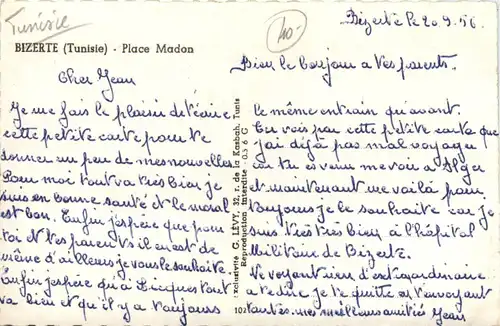 Tunisie
40-
Bizerte le 20.9.56.
BIZERTE (Tunisie) - Place Madon
Bien le bonjour a tes parents.
Cher Jean
Je me fais le plaisir de t'écrire
cette petite carte pour te
donner un peu de mes nouvelles
Pour moi tout va très bien je
suis en bonne santé et le moral
est bon. Enfin j'espère que pour
toi et tes parents il en est de
même d'ailleurs je vous le souhaite.
Enfin j'espère qu'à Sicques tout
va bien et qu'il y a toujours
Exclusivité G. LÉVY, 32, r. de la Kasbah, Tunis
Reproduction Interdite - 0.5 6 G
102
le même entrain qu'avant.
Tu vois par cette petite carte que
j'ai déjà pas mal voyagé
car tu es venu me voir a Alger
et maintenant me voilà pour
toujours je le souhaite car je
suis très très bien à l'hôpital
Militaire de Bizerte.
Ne voyant rien d'extraordinaire
a te dire je te quitte en t'envoyant
toutes mes meilleurs amitiés Jean